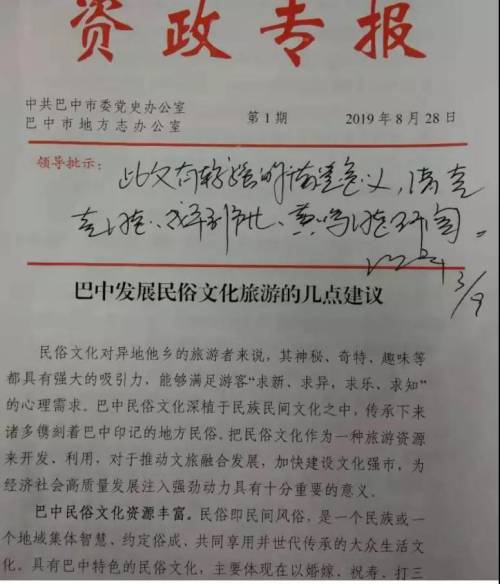 资政专报
中共巴中市委党史办公室
巴中市地方志办公室
第1期
2019年8月28日
领导批示：
此文有较强的借鉴意义，请
阅
3/9
巴中发展民俗文化旅游的几点建议
民俗文化对异地他乡的旅游者来说，其神秘、奇特、趣味等
都具有强大的吸引力，能够满足游客“求新、求异，求乐、求知”
的心理需求。巴中民俗文化深植于民族民间文化之中，传承下来
诸多镌刻着巴中印记的地方民俗。把民俗文化作为一种旅游资源
来开发、利用，对于推动文旅融合发展，加快建设文化强市，为
经济社会高质量发展注入强劲动力具有十分重要的意义。
巴中民俗文化资源丰富。民俗即民间风俗，是一个民族或一
个地域集体智慧、约定俗成、共同享用并世代传承的大众生活文
化。具有巴中特色的民俗文化，主要体现在以婚嫁、祝寿、打三